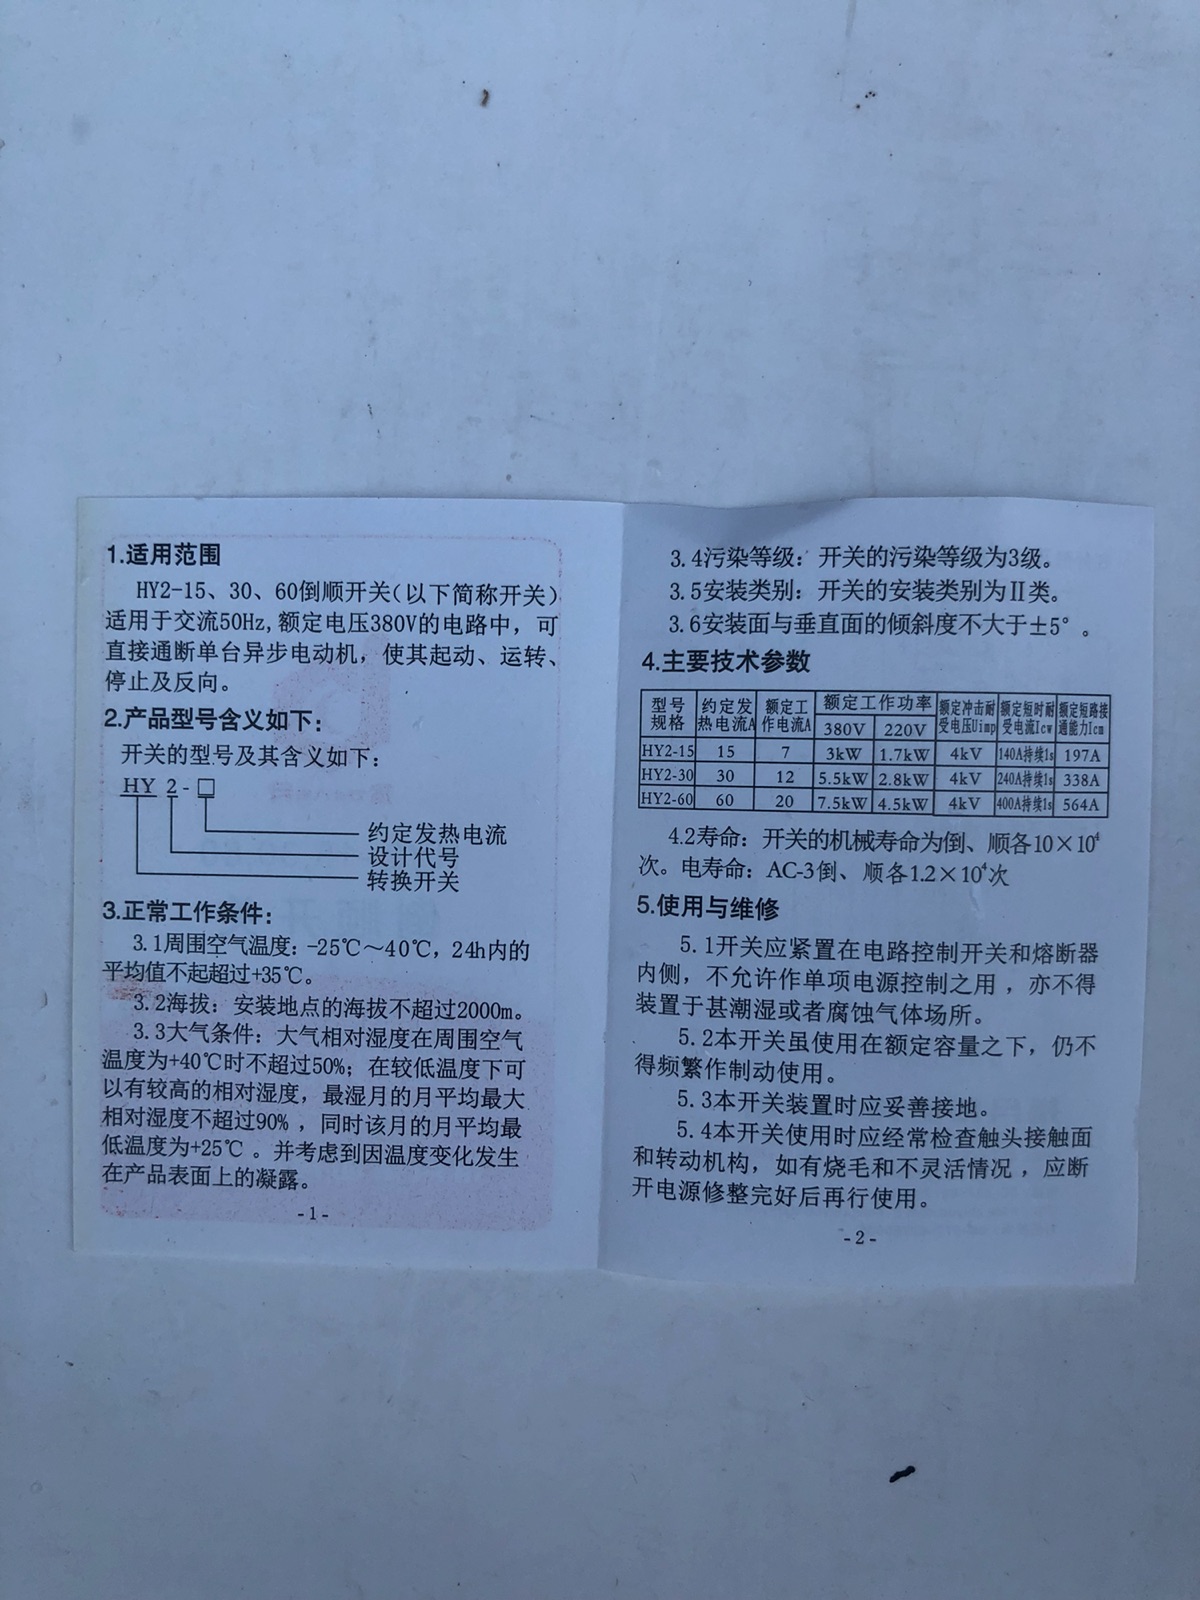 1.适用范围
HY2-15、30、60倒顺开关(以下简称开关)
适用于交流50Hz,额定电压380V的电路中，可
直接通断单台异步电动机，使其起动、运转、
停止及反向。
2.产品型号含义如下：
开关的型号及其含义如下：
HY 2-□
约定发热电流
设计代号
转换开关
3.正常工作条件：
3.1周围空气温度：-25℃～40℃，24h内的
平均值不起超过+35℃。
3.2海拔：安装地点的海拔不超过2000m。
3.3大气条件：大气相对湿度在周围空气
温度为+40℃时不超过50%；在较低温度下可
以有较高的相对湿度，最湿月的月平均最大
相对湿度不超过90%，同时该月的月平均最
低温度为+25℃。并考虑到因温度变化发生
在产品表面上的凝露。
-1-
3.4污染等级：开关的污染等级为3级。
3.5安装类别：开关的安装类别为II类。
3.6安装面与垂直面的倾斜度不大于±5°。
4.主要技术参数
型号规格 约定发热电流A 额定工作电流A 额定工作功率 额定冲击耐受电压Uimp 额定短时耐受电流Icw 额定短路接通能力Icm
380V 220V
HY2-15 15 7 3kW 1.7kW 4kV 140A持续1s 197A
HY2-30 30 12 5.5kW 2.8kW 4kV 240A持续1s 338A
HY2-60 60 20 7.5kW 4.5kW 4kV 400A持续1s 564A
4.2寿命：开关的机械寿命为倒、顺各10×10⁴
次。电寿命：AC-3倒、顺各1.2×10⁴次
5.使用与维修
5.1开关应紧置在电路控制开关和熔断器
内侧，不允许作单项电源控制之用，亦不得
装置于甚潮湿或者腐蚀气体场所。
5.2本开关虽使用在额定容量之下，仍不
得频繁作制动使用。
5.3本开关装置时应妥善接地。
5.4本开关使用时应经常检查触头接触面
和转动机构，如有烧毛和不灵活情况，应断
开电源修整完好后再行使用。
-2-